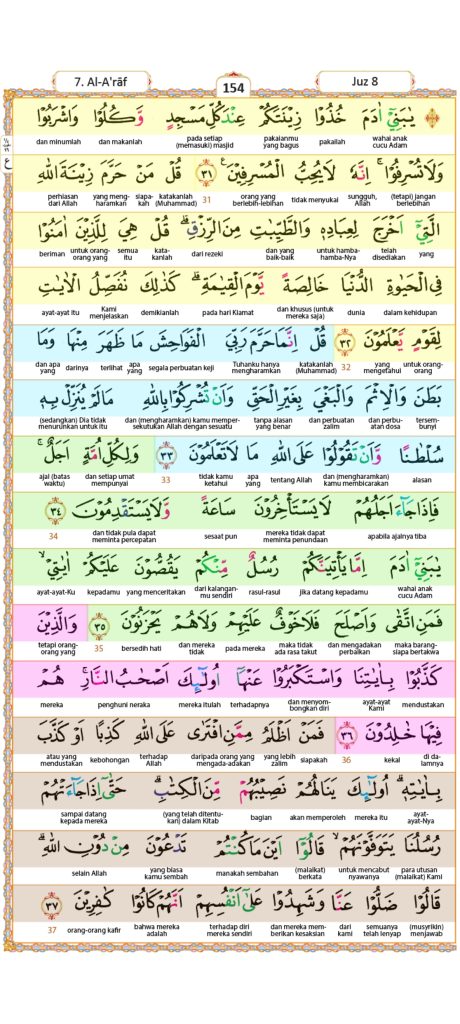 7. Al-A'rāf
154
Juz 8
يٰبَنِيْٓ اٰدَمَ خُذُوْا زِيْنَتَكُمْ عِنْدَ كُلِّ مَسْجِدٍ وَّكُلُوْا وَاشْرَبُوْا
wahai anak cucu Adam pakailah pakaianmu yang bagus pada setiap (memasuki) masjid dan makanlah dan minumlah
وَلَا تُسْرِفُوْاۚ اِنَّهٗ لَا يُحِبُّ الْمُسْرِفِيْنَ ࣖ ٣١ قُلْ مَنْ حَرَّمَ زِيْنَةَ اللّٰهِ
(tetapi) jangan berlebihan sungguh, Allah tidak menyukai orang yang berlebih-lebihan 31 katakanlah (Muhammad) siapakah yang mengharamkan perhiasan dari Allah
الَّتِيْٓ اَخْرَجَ لِعِبَادِهٖ وَالطَّيِّبٰتِ مِنَ الرِّزْقِۗ قُلْ هِيَ لِلَّذِيْنَ اٰمَنُوْا
yang telah disediakan untuk hamba-hamba-Nya dan yang baik-baik dari rezeki katakanlah semua itu untuk orang-orang yang beriman
فِى الْحَيٰوةِ الدُّنْيَا خَالِصَةً يَّوْمَ الْقِيٰمَةِۗ كَذٰلِكَ نُفَصِّلُ الْاٰيٰتِ
dalam kehidupan dunia dan khusus (untuk mereka saja) pada hari Kiamat demikianlah Kami menjelaskan ayat-ayat itu
لِقَوْمٍ يَّعْلَمُوْنَ ٣٢ قُلْ اِنَّمَا حَرَّمَ رَبِّيَ الْفَوَاحِشَ مَا ظَهَرَ مِنْهَا وَمَا
untuk orang-orang yang mengetahui 32 katakanlah (Muhammad) Tuhanku hanya mengharamkan segala perbuatan keji apa yang terlihat darinya dan apa yang
بَطَنَ وَالْاِثْمَ وَالْبَغْيَ بِغَيْرِ الْحَقِّ وَاَنْ تُشْرِكُوْا بِاللّٰهِ مَا لَمْ يُنَزِّلْ بِهٖ
tersembunyi dan perbuatan dosa dan perbuatan zalim tanpa alasan yang benar dan (mengharamkan) kamu mempersekutukan Allah dengan sesuatu (sedangkan) Dia tidak menurunkan untuk itu
سُلْطٰنًا وَّاَنْ تَقُوْلُوْا عَلَى اللّٰهِ مَا لَا تَعْلَمُوْنَ ٣٣ وَلِكُلِّ اُمَّةٍ اَجَلٌۚ
alasan dan (mengharamkan) kamu membicarakan tentang Allah apa yang tidak kamu ketahui 33 dan setiap umat mempunyai ajal (batas waktu)
فَاِذَا جَاۤءَ اَجَلُهُمْ لَا يَسْتَأْخِرُوْنَ سَاعَةً وَّلَا يَسْتَقْدِمُوْنَ ٣٤
apabila ajalnya tiba mereka tidak dapat meminta penundaan sesaat pun dan tidak pula dapat meminta percepatan 34
يٰبَنِيْٓ اٰدَمَ اِمَّا يَأْتِيَنَّكُمْ رُسُلٌ مِّنْكُمْ يَقُصُّوْنَ عَلَيْكُمْ اٰيٰتِيْۙ
wahai anak cucu Adam jika datang kepadamu rasul-rasul dari kalanganmu sendiri yang menceritakan kepadamu ayat-ayat-Ku
فَمَنِ اتَّقٰى وَاَصْلَحَ فَلَا خَوْفٌ عَلَيْهِمْ وَلَا هُمْ يَحْزَنُوْنَ ٣٥ وَالَّذِيْنَ
maka barangsiapa bertakwa dan mengadakan perbaikan maka tidak ada rasa takut pada mereka dan mereka tidak bersedih hati 35 tetapi orang-orang yang
كَذَّبُوْا بِاٰيٰتِنَا وَاسْتَكْبَرُوْا عَنْهَآ اُولٰۤىِٕكَ اَصْحٰبُ النَّارِۚ هُمْ
mendustakan ayat-ayat Kami dan menyombongkan diri terhadapnya mereka itulah penghuni neraka mereka
فِيْهَا خٰلِدُوْنَ ٣٦ فَمَنْ اَظْلَمُ مِمَّنِ افْتَرٰى عَلَى اللّٰهِ كَذِبًا اَوْ كَذَّبَ
di dalamnya kekal 36 siapakah yang lebih zalim daripada orang yang mengada-adakan terhadap Allah kebohongan atau yang mendustakan
بِاٰيٰتِهٖۗ اُولٰۤىِٕكَ يَنَالُهُمْ نَصِيْبُهُمْ مِّنَ الْكِتٰبِۗ حَتّٰٓى اِذَا جَاۤءَتْهُمْ
ayat-ayat-Nya mereka itu akan memperoleh bagian (yang telah ditentukan) dalam Kitab sampai datang kepada mereka
رُسُلُنَا يَتَوَفَّوْنَهُمْۙ قَالُوْٓا اَيْنَ مَا كُنْتُمْ تَدْعُوْنَ مِنْ دُوْنِ اللّٰهِۗ
para utusan (malaikat) Kami untuk mencabut nyawanya (malaikat) berkata manakah sembahan yang biasa kamu sembah selain Allah
قَالُوْا ضَلُّوْا عَنَّا وَشَهِدُوْا عَلٰٓى اَنْفُسِهِمْ اَنَّهُمْ كَانُوْا كٰفِرِيْنَ ٣٧
(musyrikin) menjawab semuanya telah lenyap dari kami dan mereka memberikan kesaksian terhadap diri mereka sendiri bahwa mereka adalah orang-orang kafir 37